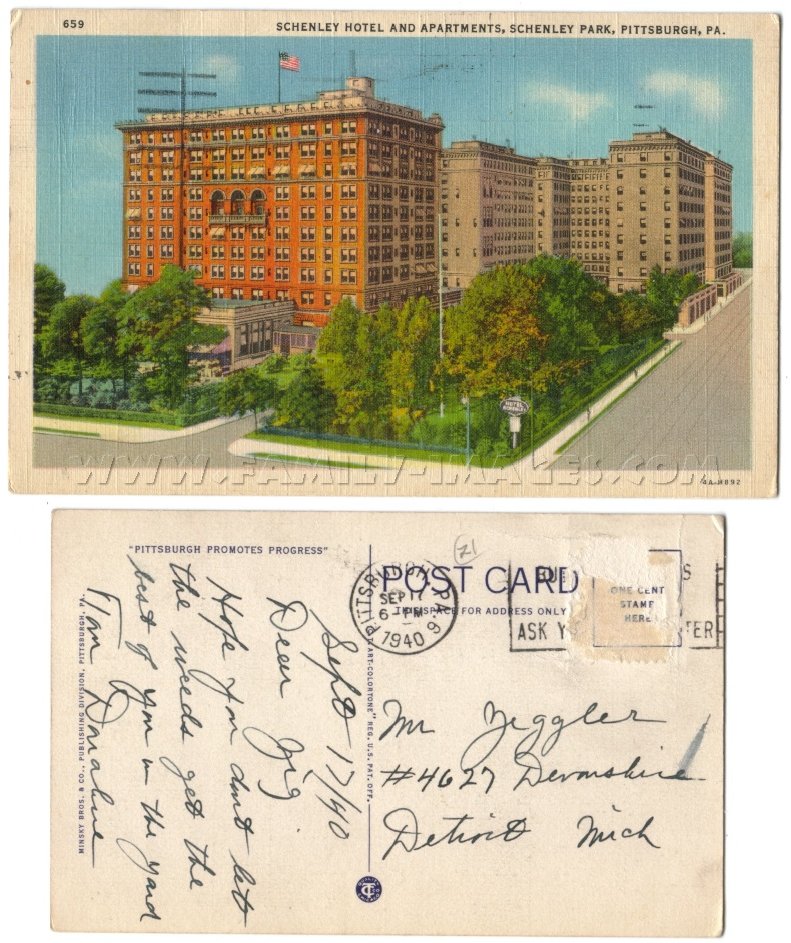 659
SCHENLEY HOTEL AND APARTMENTS, SCHENLEY PARK, PITTSBURGH, PA.
WWW.FAMILY-IMAGES.COM
4A-H892
"PITTSBURGH PROMOTES PROGRESS"
21
POST CARD
THIS SPACE FOR ADDRESS ONLY
PITTSBURGH, PA. 9
SEP 17
6 - PM
1940
ASK Y
TER
ONE CENT
STAMP
HERE
Sept 17/40
Dear Zig
Hope you don't let
the weeds get the
best of you in the yard
Donahue
Mr Zeggler
#4627 Devonshire
Detroit Mich
"ART-COLORTONE" REG. U.S. PAT. OFF.
MINSKY BROS. & CO., PUBLISHING DIVISION, PITTSBURGH, PA.